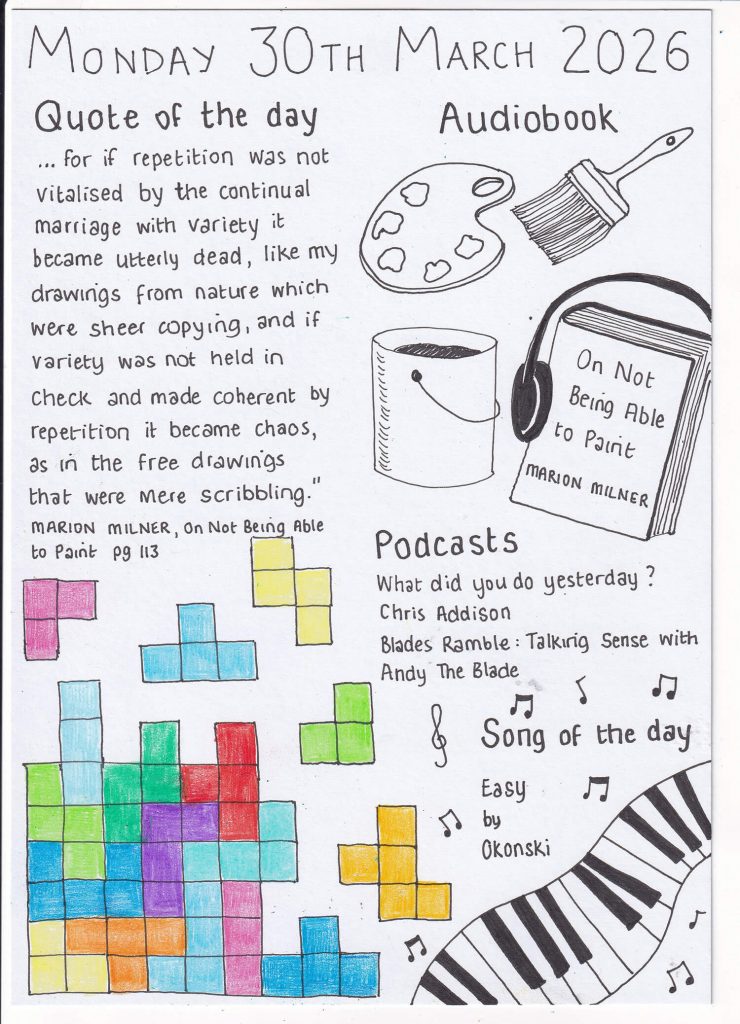 MONDAY 30TH MARCH 2026
Quote of the day
... for if repetition was not
vitalised by the continual
marriage with variety it
became utterly dead, like my
drawings from nature which
were sheer copying, and if
variety was not held in
check and made coherent by
repetition it became chaos,
as in the free drawings
that were mere scribbling."
MARION MILNER, On Not Being Able
to Paint pg 113
Audiobook
On Not
Being Able
to Paint
MARION MILNER
Podcasts
What did you do yesterday?
Chris Addison
Blades Ramble: Talking Sense with
Andy The Blade
Song of the day
Easy
by
Okonski